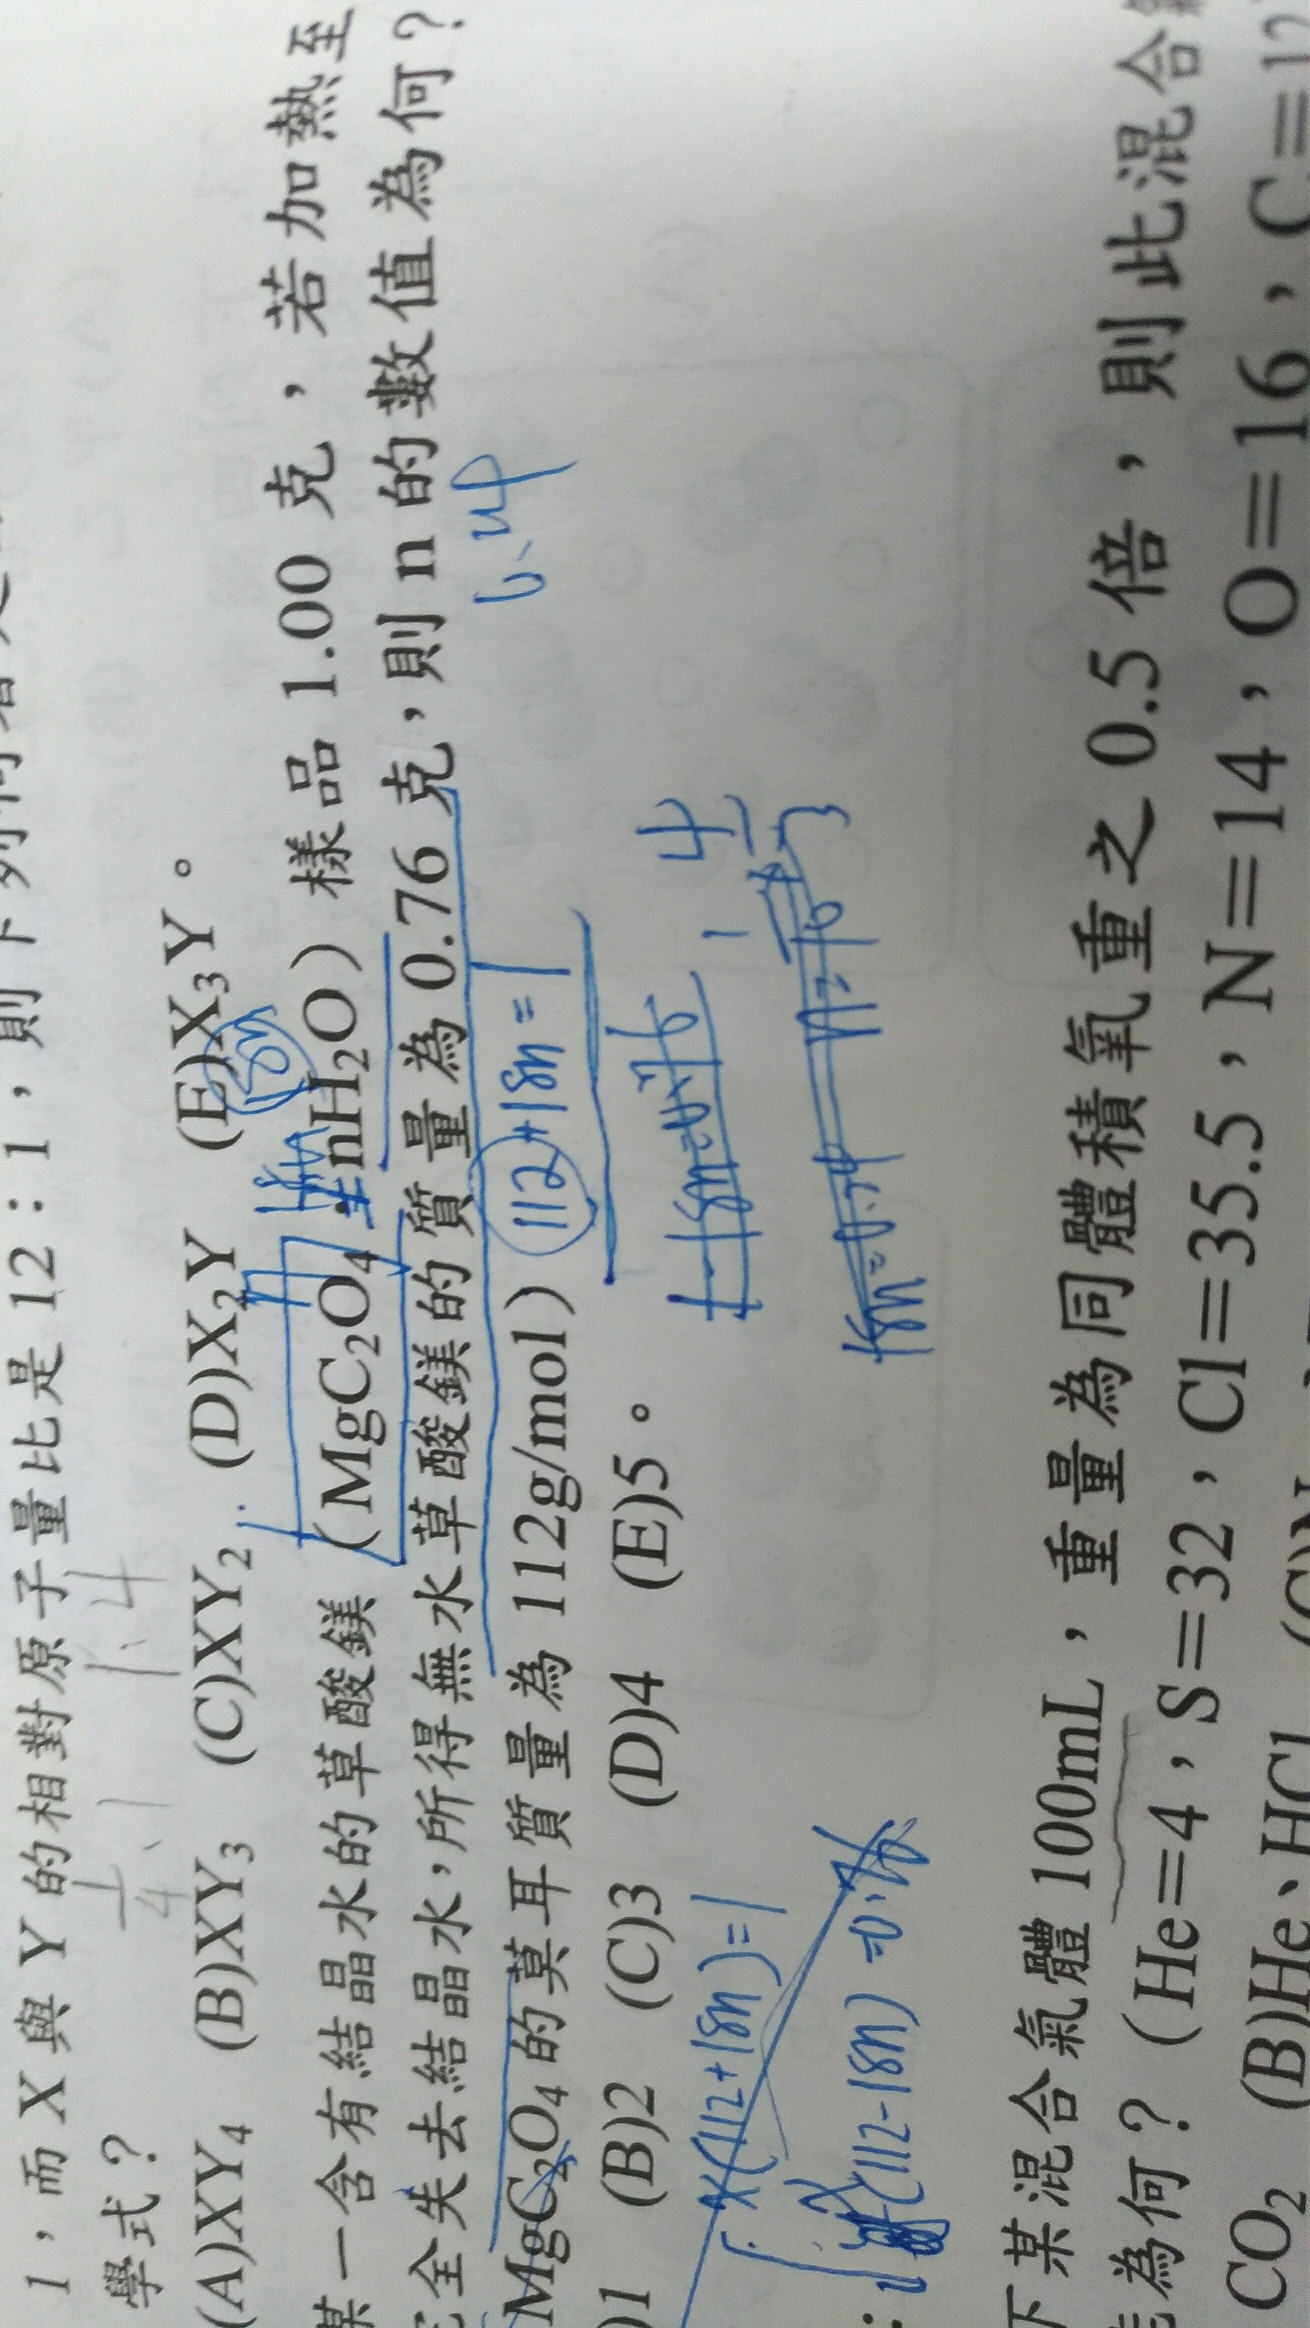 1，而 X 與 Y 的相對原子量比是 12：1，則下列何者
學式？
1/4、1
1、4
(A)XY₄ (B)XY₃ (C)XY₂ (D)X₂Y (E)X₃Y。
18n
某一含有結晶水的草酸鎂（MgC₂O₄·nH₂O）樣品 1.00 克，若加熱至
完全失去結晶水，所得無水草酸鎂的質量為 0.76 克，則 n 的數值為何？
0.24
MgC₂O₄ 的莫耳質量為 112g/mol）
112+18n=1
)1 (B)2 (C)3 (D)4 (E)5。
x(112+18n)=1
1-18n=0.76
(112-18n)=0.76
18n=0.24
下某混合氣體 100mL，重量為同體積氧重之 0.5 倍，則此混合氣
能為何？（He=4，S=32，Cl=35.5，N=14，O=16，C=12
CO₂ (B)He、HCl